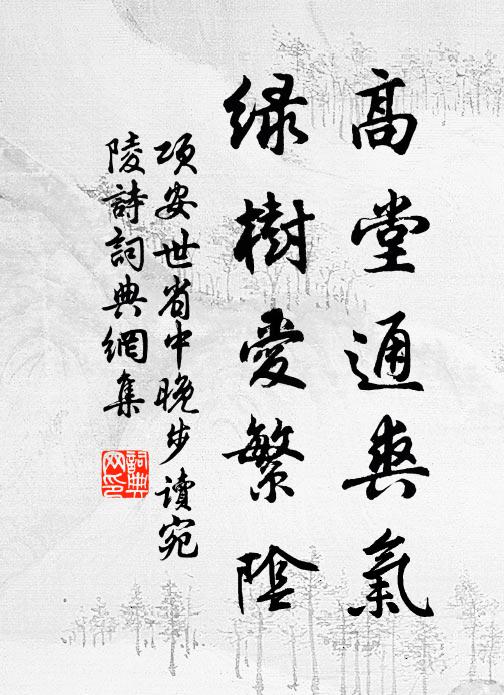 高堂通爽氣
綠樹愛繁陰
項安世省中晚步讀宛
陵詩詞典網集
詞典
网印